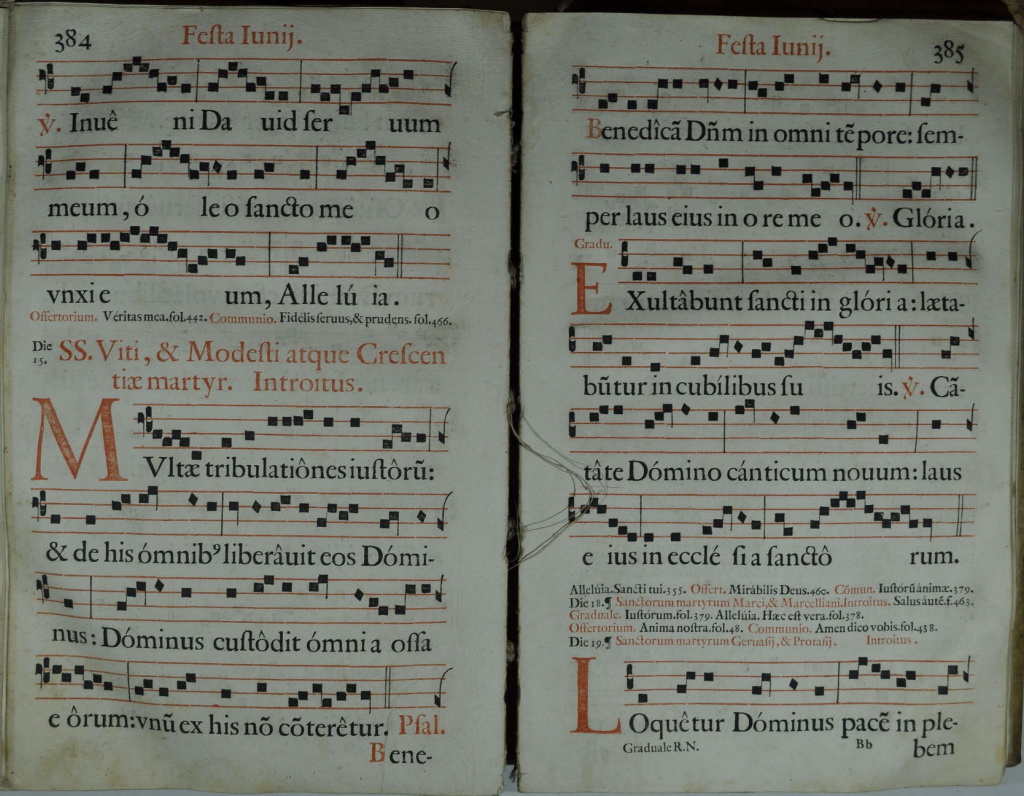 384 Festa Iunij.
℣. Inuê ni Da uid ser uum
meum, ó leo sancto me o
vnxi e um, Alle lú ia.
Offertorium. Veritas mea.fol.442. Communio. Fidelis seruus,& prudens. fol.466.
Die 15. SS. Viti, & Modesti atque Crescen
tiæ martyr. Introitus.
MVltæ tribulatiônes iustôrũ:
& de his ómnibꝰ liberâuit eos Dómi-
nus: Dóminus custôdit ómni a ossa
e ôrum: vnũ ex his nõ cõterêtur. Psal.
Bene-
Festa Iunij. 385
Benedîcã Dñm in omni tẽpore: sem-
per laus eius in o re me o. ℣. Glória.
Gradu.
EXultâbunt sancti in glóri a: læta-
bũtur in cubílibus su is. ℣. Cã-
tâte Dómino cánticum nouum: laus
e ius in ecclé si a sanctô rum.
Allelúia. Sancti tui.355. Offert. Mirâbilis Deus.460. Cõmun. Iustórũ ânimæ.379.
Die 18.¶ Sanctorum martyrum Marci, & Marcelliani. Introitus. Salus áutẽ.f.463.
Graduale. Iustórum.fol.379. Allelúia. Hæc est vera.fol.378.
Offertorium. Anima nostra.fol.48. Communio. Amen dico vobis.fol.438.
Die 19.¶ Sanctorum martyrum Geruasij, & Protasij. Introitus.
LOquêtur Dóminus pacẽ in ple-
Graduale R.N. Bb bem